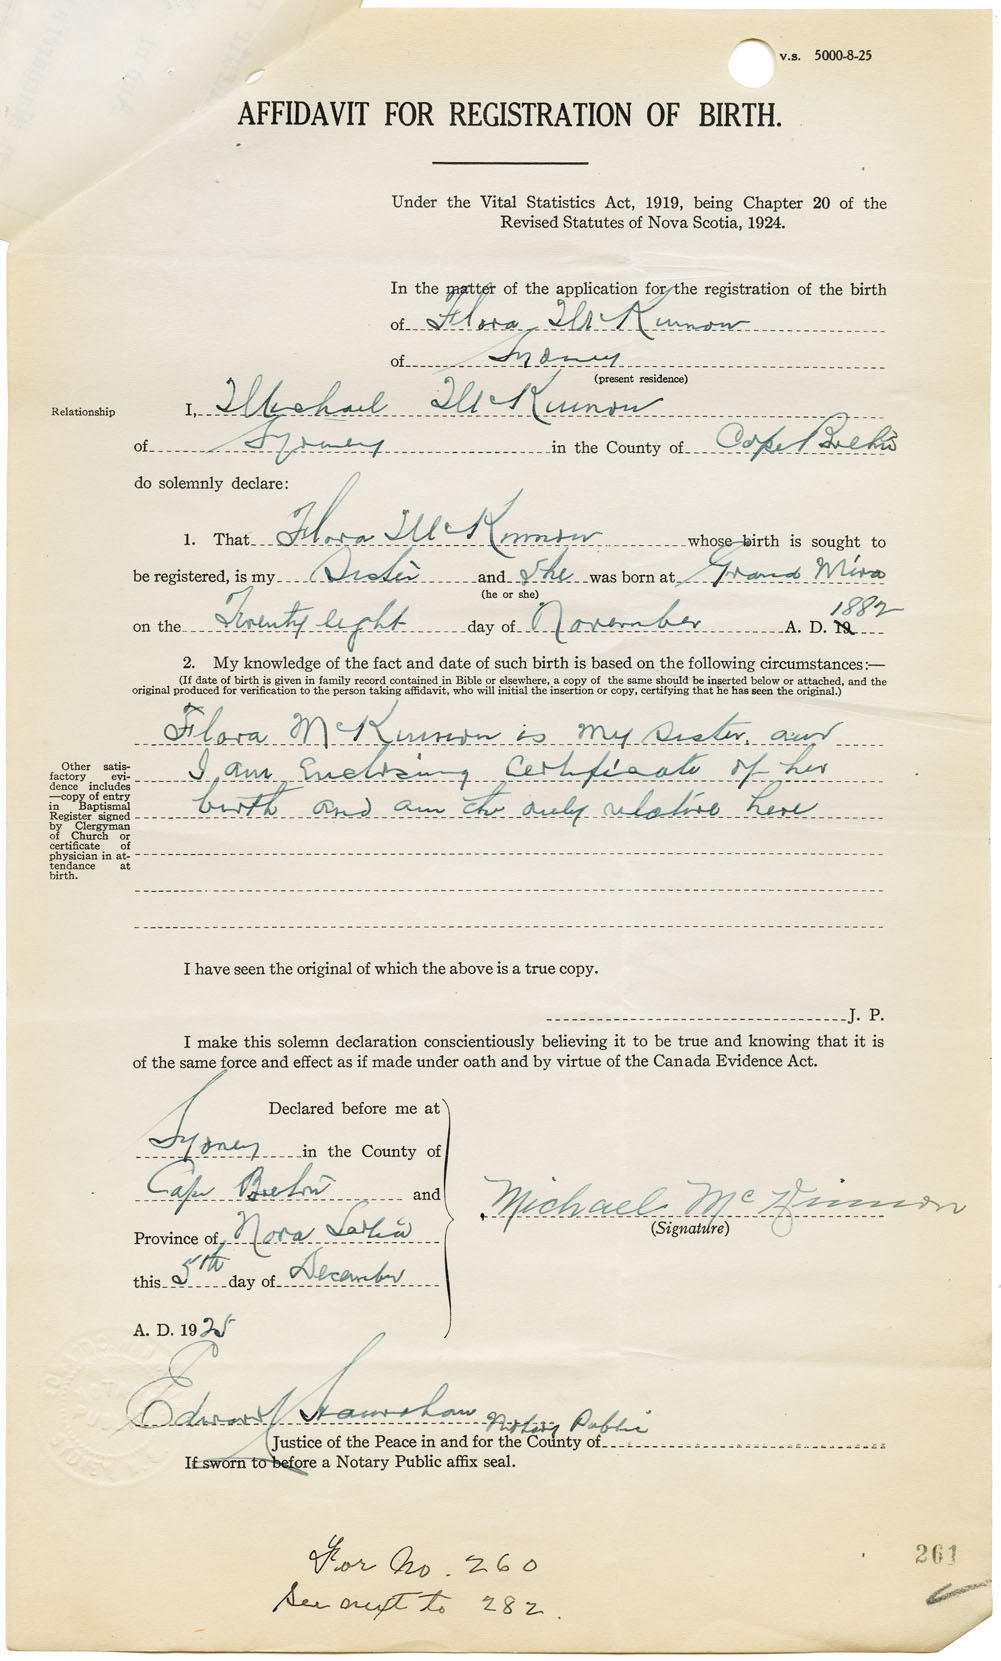 v.s. 5000-8-25
AFFIDAVIT FOR REGISTRATION OF BIRTH.
Under the Vital Statistics Act, 1919, being Chapter 20 of the
Revised Statutes of Nova Scotia, 1924.
In the matter of the application for the registration of the birth
of Flora McKinnon
of Sydney
(present residence)
Relationship I, Michael McKinnon
of Sydney in the County of Cape Breton
do solemnly declare:
1. That Flora McKinnon whose birth is sought to
be registered, is my Sister and She was born at Grand Mira
(he or she)
on the Twenty eight day of November A. D. 19 1882
2. My knowledge of the fact and date of such birth is based on the following circumstances:—
(If date of birth is given in family record contained in Bible or elsewhere, a copy of the same should be inserted below or attached, and the
original produced for verification to the person taking affidavit, who will initial the insertion or copy, certifying that he has seen the original.)
Flora McKinnon is my sister, and
I am Enclosing Certificate of her
birth and am the only relative here
Other satis-
factory evi-
dence includes
—copy of entry
in Baptismal
Register signed
by Clergyman
of Church or
certificate of
physician in at-
tendance at
birth.
I have seen the original of which the above is a true copy.
J. P.
I make this solemn declaration conscientiously believing it to be true and knowing that it is
of the same force and effect as if made under oath and by virtue of the Canada Evidence Act.
Declared before me at
Sydney in the County of
Cape Breton and
Province of Nova Scotia
this 5th day of December
A. D. 1925
Michael McKinnon
(Signature)
Edward Notary Public
Justice of the Peace in and for the County of
If sworn to before a Notary Public affix seal.
For No. 260
See next to 282.
261